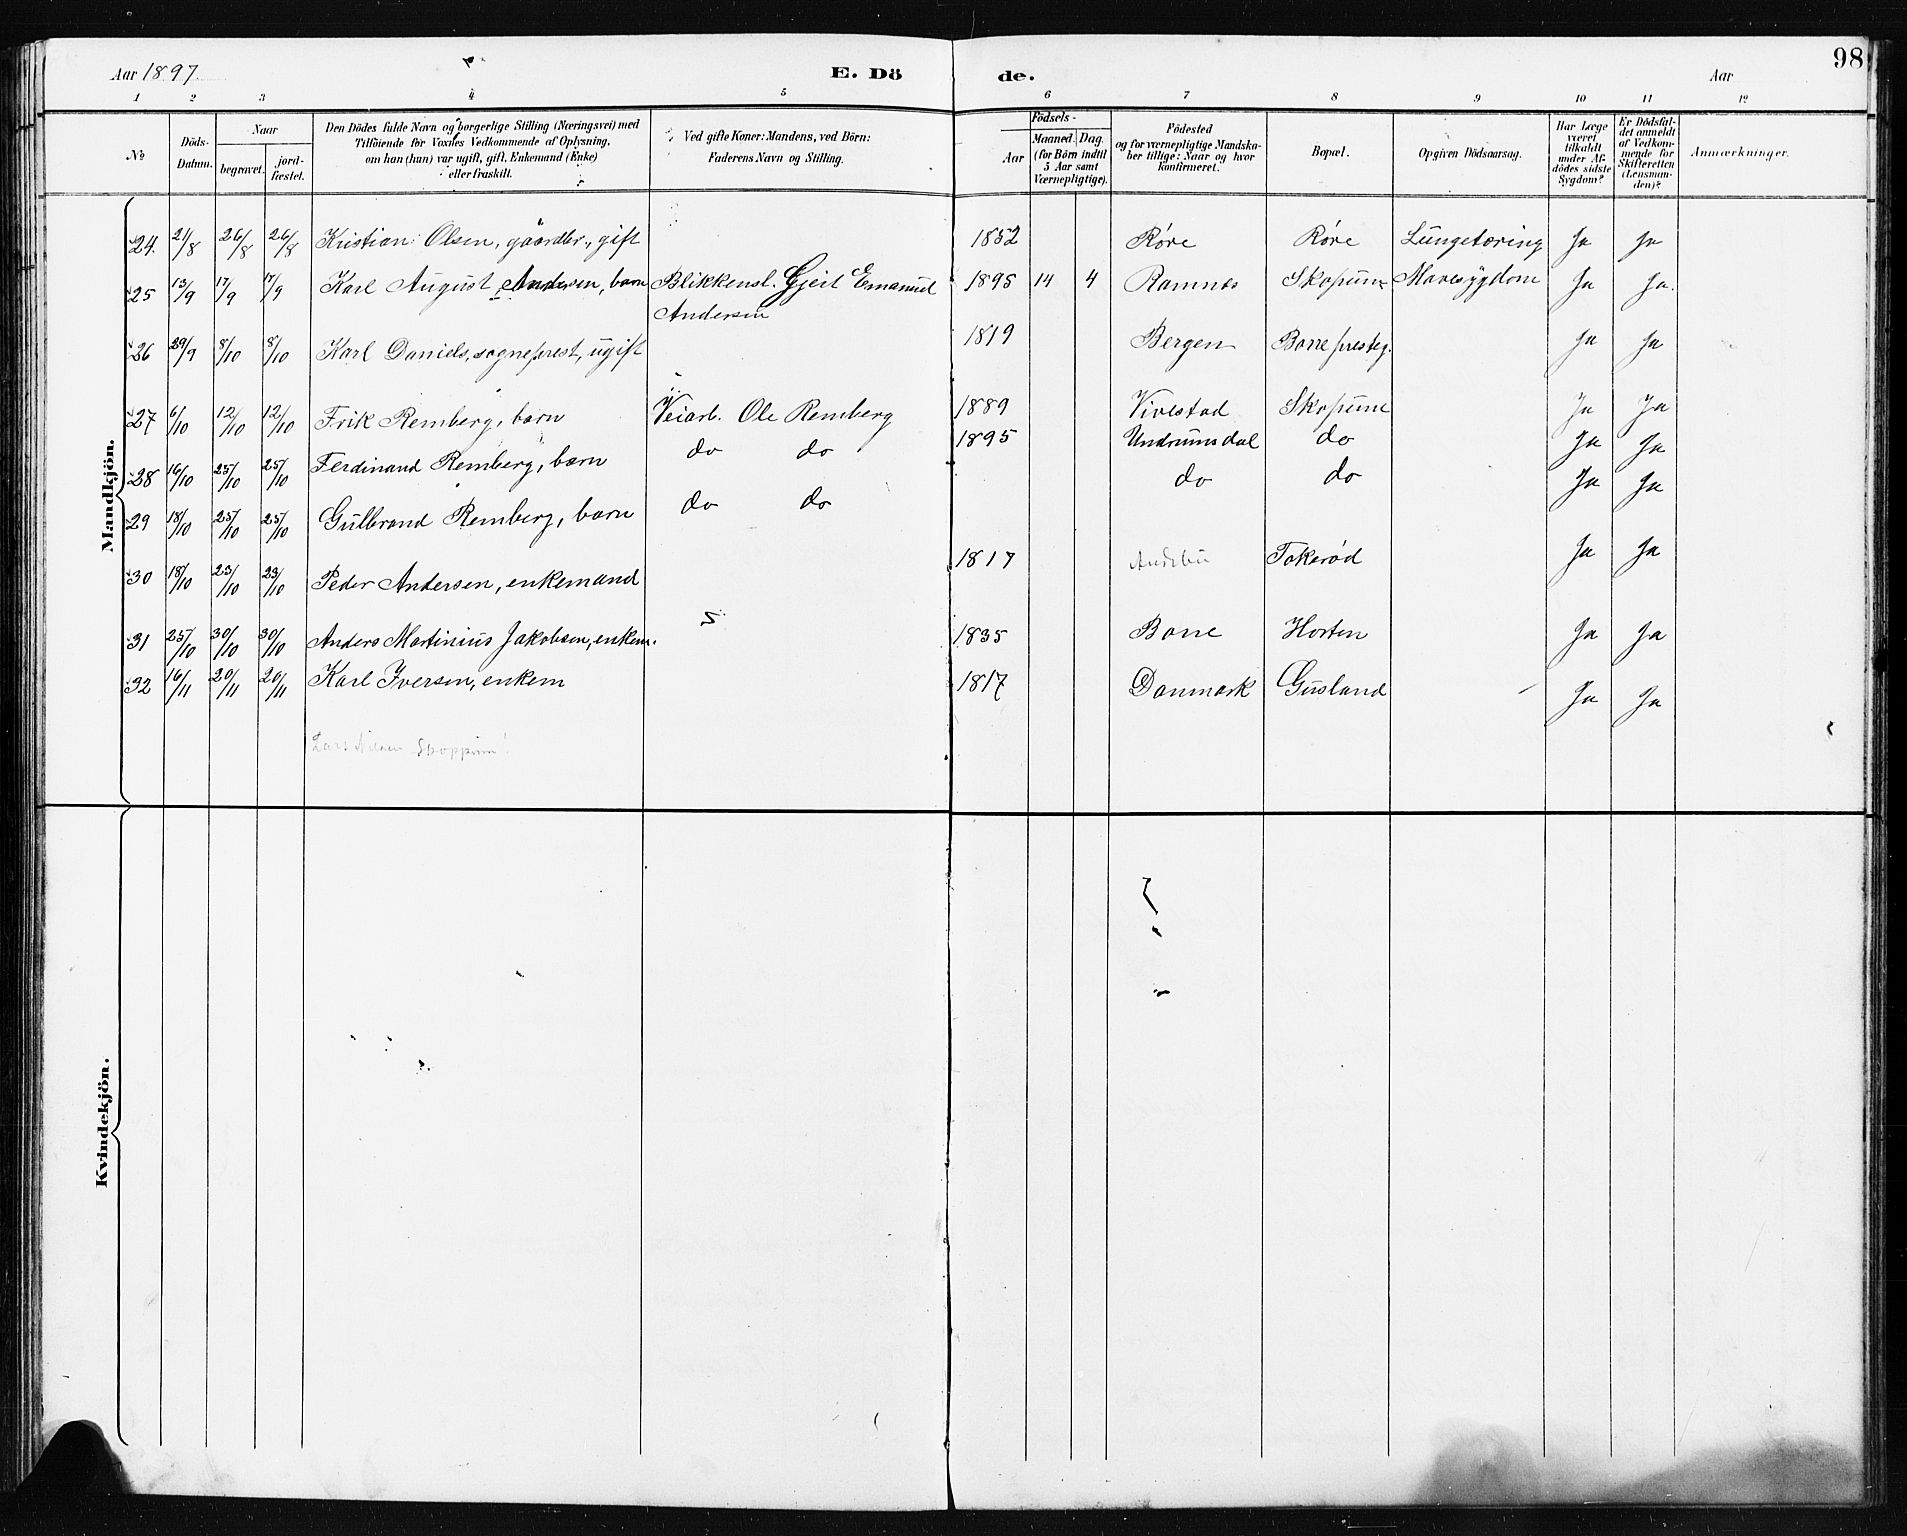 Aar 1897. E. Dö de. Aar 98
1 2 3 4 5 6 7 8 9 10 11 12
No
Döds-Datum.
Naar
begravet.
jord-fæstet.
Den Dödes fulde Navn og borgerlige Stilling (Næringsvei) med
Tilföiende for Voxnes Vedkommende af Oplysning,
om han (hun) var ugift, gift, Enkemand (Enke)
eller fraskilt.
Ved gifte Koner: Mandens, ved Börn:
Faderens Navn og Stilling.
Födsels-
Aar
Maaned. Dag.
(for Börn indtil
5 Aar samt
Værnepligtige).
Födested
og for værnepligtige Mandska-
ber tillige: Naar og hvor
konfirmeret.
Bopæl.
Opgiven Dödsaarsag.
Har Læge
været
tilkaldt
under Af-
dödes sidste
Sygdom?
Er Dödsfal-
det anmeldt
af Vedkom-
mende for
Skifteretten
(Lensman-
den)?
Anmærkninger.
Mandkjön.
24. 21/8 26/8 26/8 Kristian Olsen, gaardbr., gift 1852 Røre Røre Lungetæring Ja Ja
25 13/9 17/9 17/9 Karl August Andersen, barn Blikkensl. Gjeit Emanuel 1895 14 4 Ramnes Skopum Mavesygdom Ja Ja.
Andersen
26 29/9 8/10 8/10 Karl Daniels, sogneprest, ugift 1819 Bergen Borre presteg. Ja Ja
27 6/10 12/10 12/10 Frik Remberg, barn Veiarb. Ole Remberg 1889 Vivestad Skopum Ja Ja
28 16/10 25/10 25/10 Ferdinand Remberg, barn do do 1895 Undrumsdal do Ja Ja
29 18/10 25/10 25/10 Gulbrand Remberg, barn do do do do Ja Ja
30 18/10 23/10 23/10 Peder Andersen, enkemand 1817 Andebu Tokerød Ja Ja
31 25/10 30/10 30/10 Anders Martinius Jakobsen, enkem. 1835 Borre Horten Ja Ja
32 16/11 20/11 20/11 Karl Iversen, enkem 1817 Danmark Gusland Ja Ja
Lars Nilsen Skoppum!
Kvindekjön.